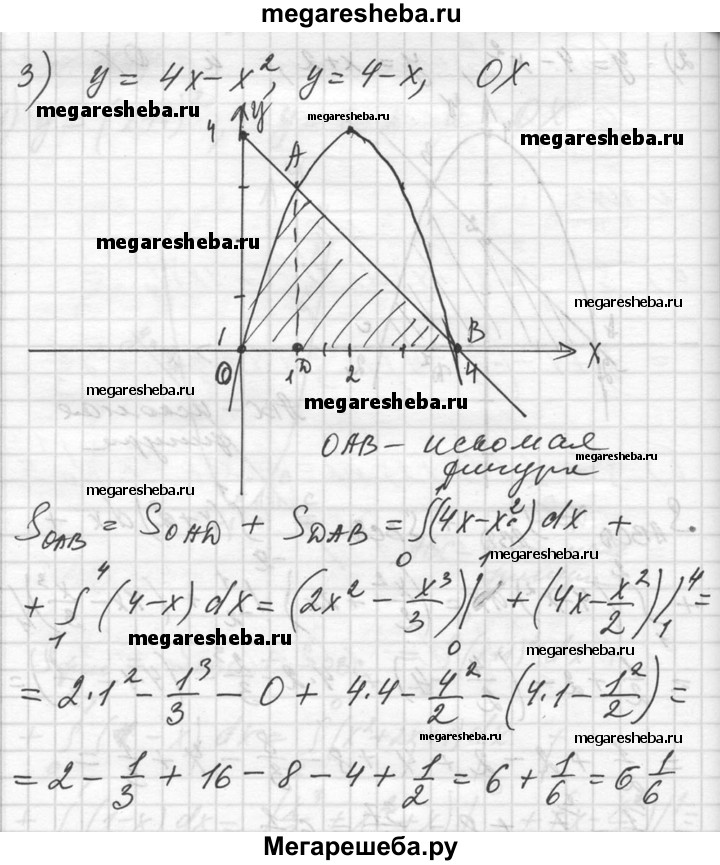 megaresheba.ru
3) y = 4x - x², y = 4 - x, OX
megaresheba.ru
megaresheba.ru
megaresheba.ru
4 y
A
megaresheba.ru
megaresheba.ru
1 B
O 1 D 2 4 x
megaresheba.ru
megaresheba.ru
OAB – искомая
фигура
megaresheba.ru
megaresheba.ru
S_OAB = S_OAD + S_DAB = ∫₀¹(4x - x²) dx +
megaresheba.ru
+ ∫₁⁴ (4 - x) dx = (2x² - x³/3)|₀¹ + (4x - x²/2)|₁⁴ =
megaresheba.ru
megaresheba.ru
= 2·1² - 1³/3 - 0 + 4·4 - 4²/2 - (4·1 - 1²/2) =
megaresheba.ru
megaresheba.ru
= 2 - 1/3 + 16 - 8 - 4 + 1/2 = 6 + 1/6 = 6 1/6
Мегарешеба.ру